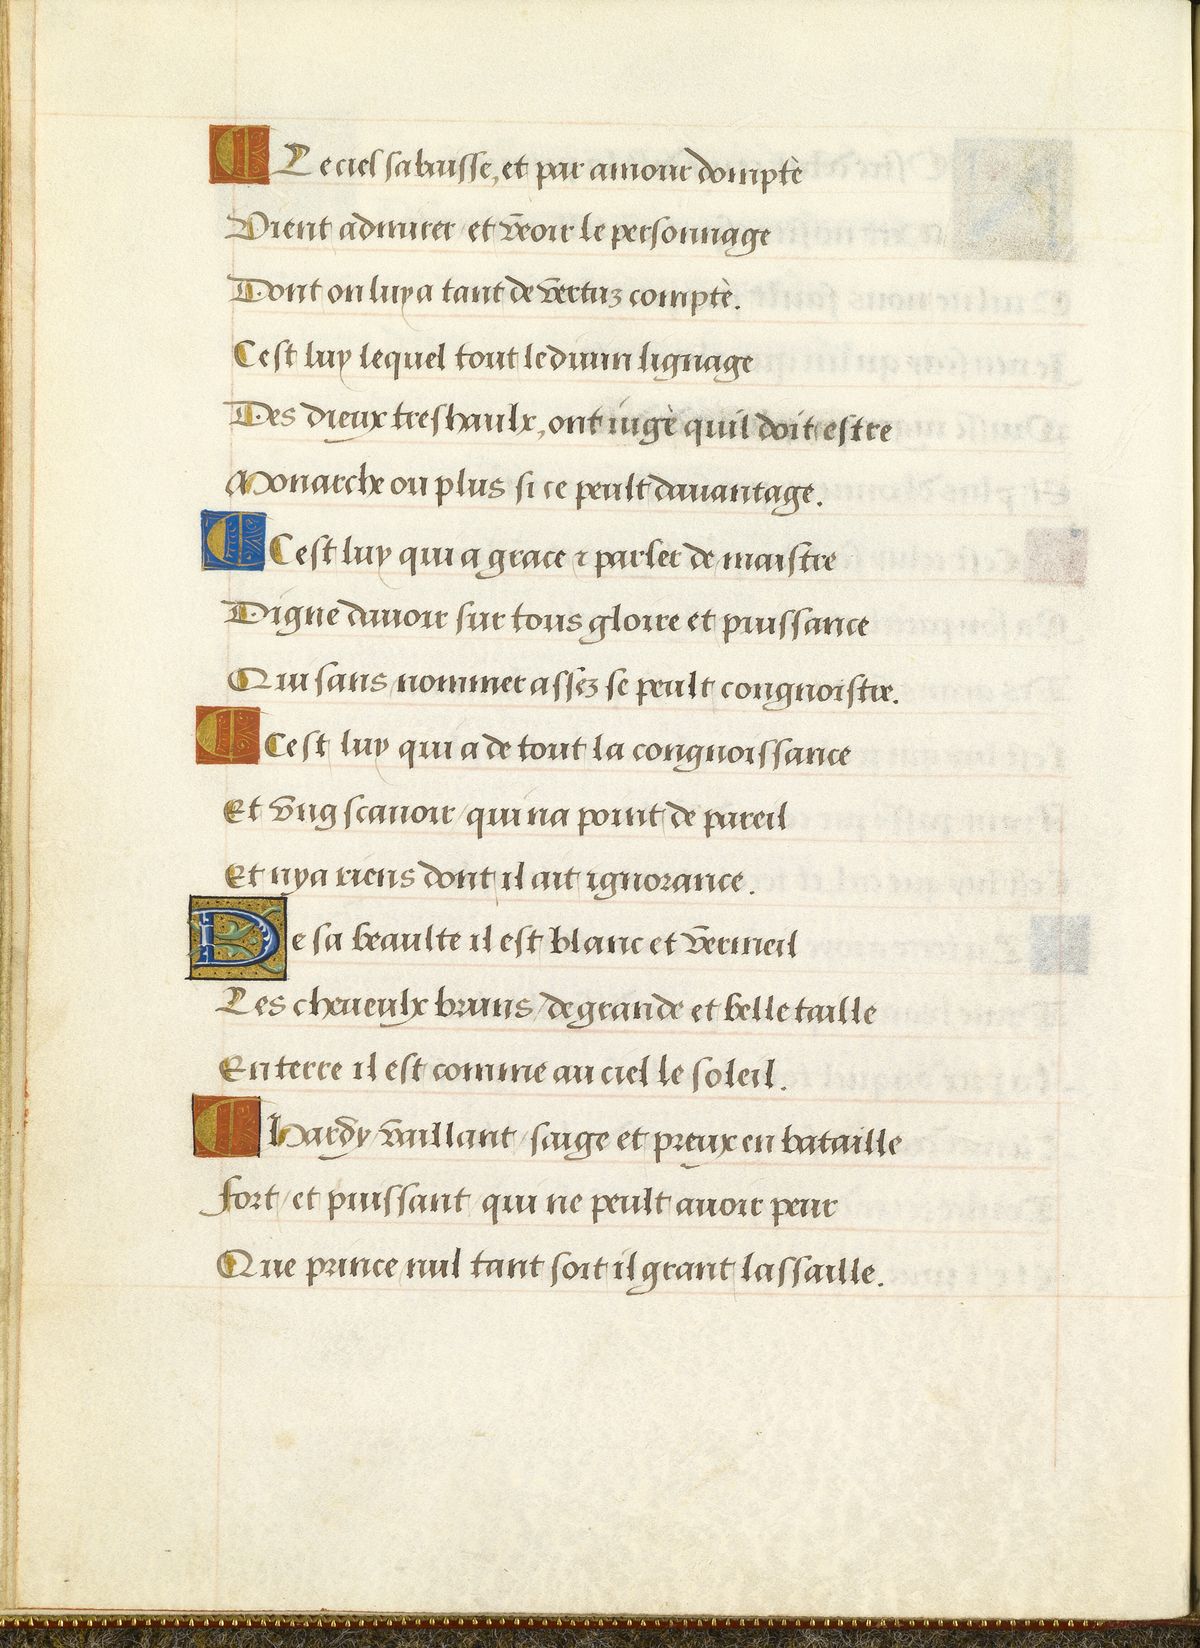 Le ciel sabaisse, et par amour domptè
Vient admirer / et veoir le personnage
Dont on luy a tant de vertuz comptè.
Cest luy lequel tout le diuin lignage
Des dieux treshaulx, ont iugè quil doit estre
Monarche ou plus si ce peult dauantage.
Cest luy qui a grace ⁊ parler de maistre
Digne dauoir sur tous gloire et puissance
Qui sans nommer assez se peult congnoistre.
Cest luy qui a de tout la congnoissance
Et vng scauoir / qui na point de pareil
Et nya riens dont il ait ignorance.
De sa beaulte il est blanc et vermeil
Les cheueulx bruns / de grande et belle taille
En terre il est comme au ciel le soleil.
Hardy / vaillant / saige et preux en bataille
fort / et puissant / qui ne peult auoir peur
Que prince nul tant soit il grant lassaille.